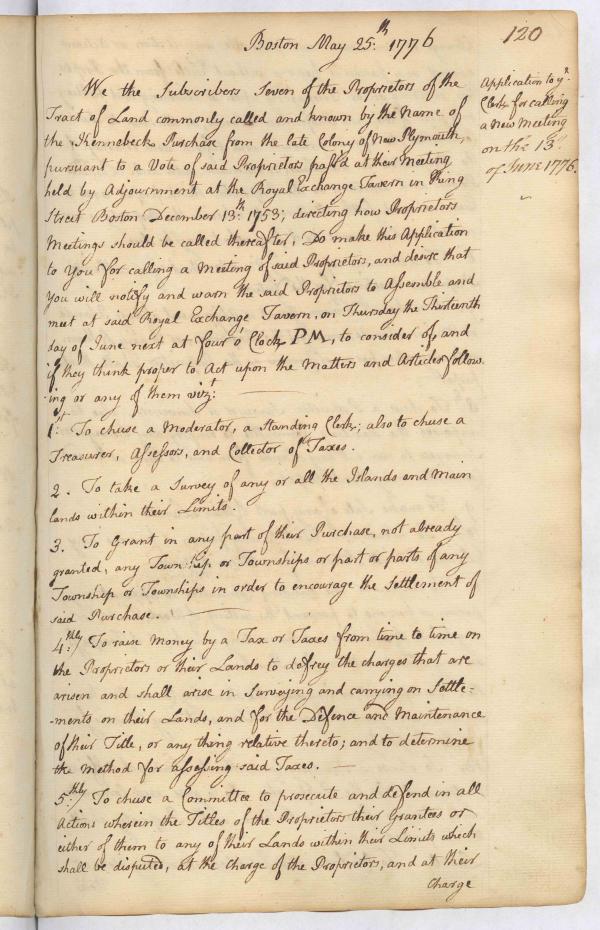 120
Boston May 25:th 1776
Application to ye
Clerk for calling
a New Meeting
on the 13th
of June 1776.
We the Subscribers Seven of the Proprietors of the
Tract of Land commonly called and known by the Name of
the Kennebeck Purchase from the late Colony of New Plymouth,
pursuant to a Vote of said Proprietors pass'd at their Meeting
held by Adjournment at the Royal Exchange Tavern in King
Street Boston December 13th: 1753; directing how Proprietors
Meetings should be called thereafter, Do make this Application
to you for calling a Meeting of said Proprietors, and desire that
you will notify and warn the said Proprietors to Assemble and
meet at said Royal Exchange Tavern, on Thursday the Thirteenth
day of June next at four o' Clock PM, to consider of, and
if they think proper to Act upon the Matters and Articles follow
-ing or any of them vizt:
1st: To chuse a Moderator, a Standing Clerk; also to chuse a
Treasurer, Assessors, and Collector of Taxes.
2. To take a Survey of any or all the Islands and Main
lands within their Limits.
3. To Grant in any part of their Purchase, not already
granted, any Township or Townships or part or parts of any
Township or Townships in order to encourage the Settlement of
said Purchase.
4:thly To raise Money by a Tax or Taxes from time to time on
the Proprietors or their Lands to defrey the charges that are
arisen and shall arise in Surveying and carrying on Settle-
-ments on their Lands, and for the Defence and Maintenance
of their Title, or any thing relative thereto; and to determine
the method for assessing said Taxes.
5:thly To chuse a Committee to prosecute and defend in all
Actions wherein the Titles of the Proprietors their Grantees or
either of them to any of their Lands within their Limits which
shall be disputed, at the Charge of the Proprietors, and at their
Charge